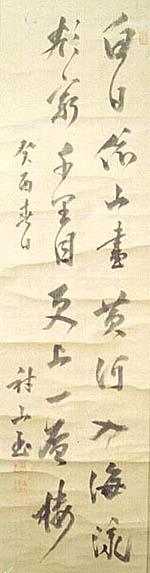 白日依山盡黄河入海流
欲窮千里目更上一層樓
癸酉春日